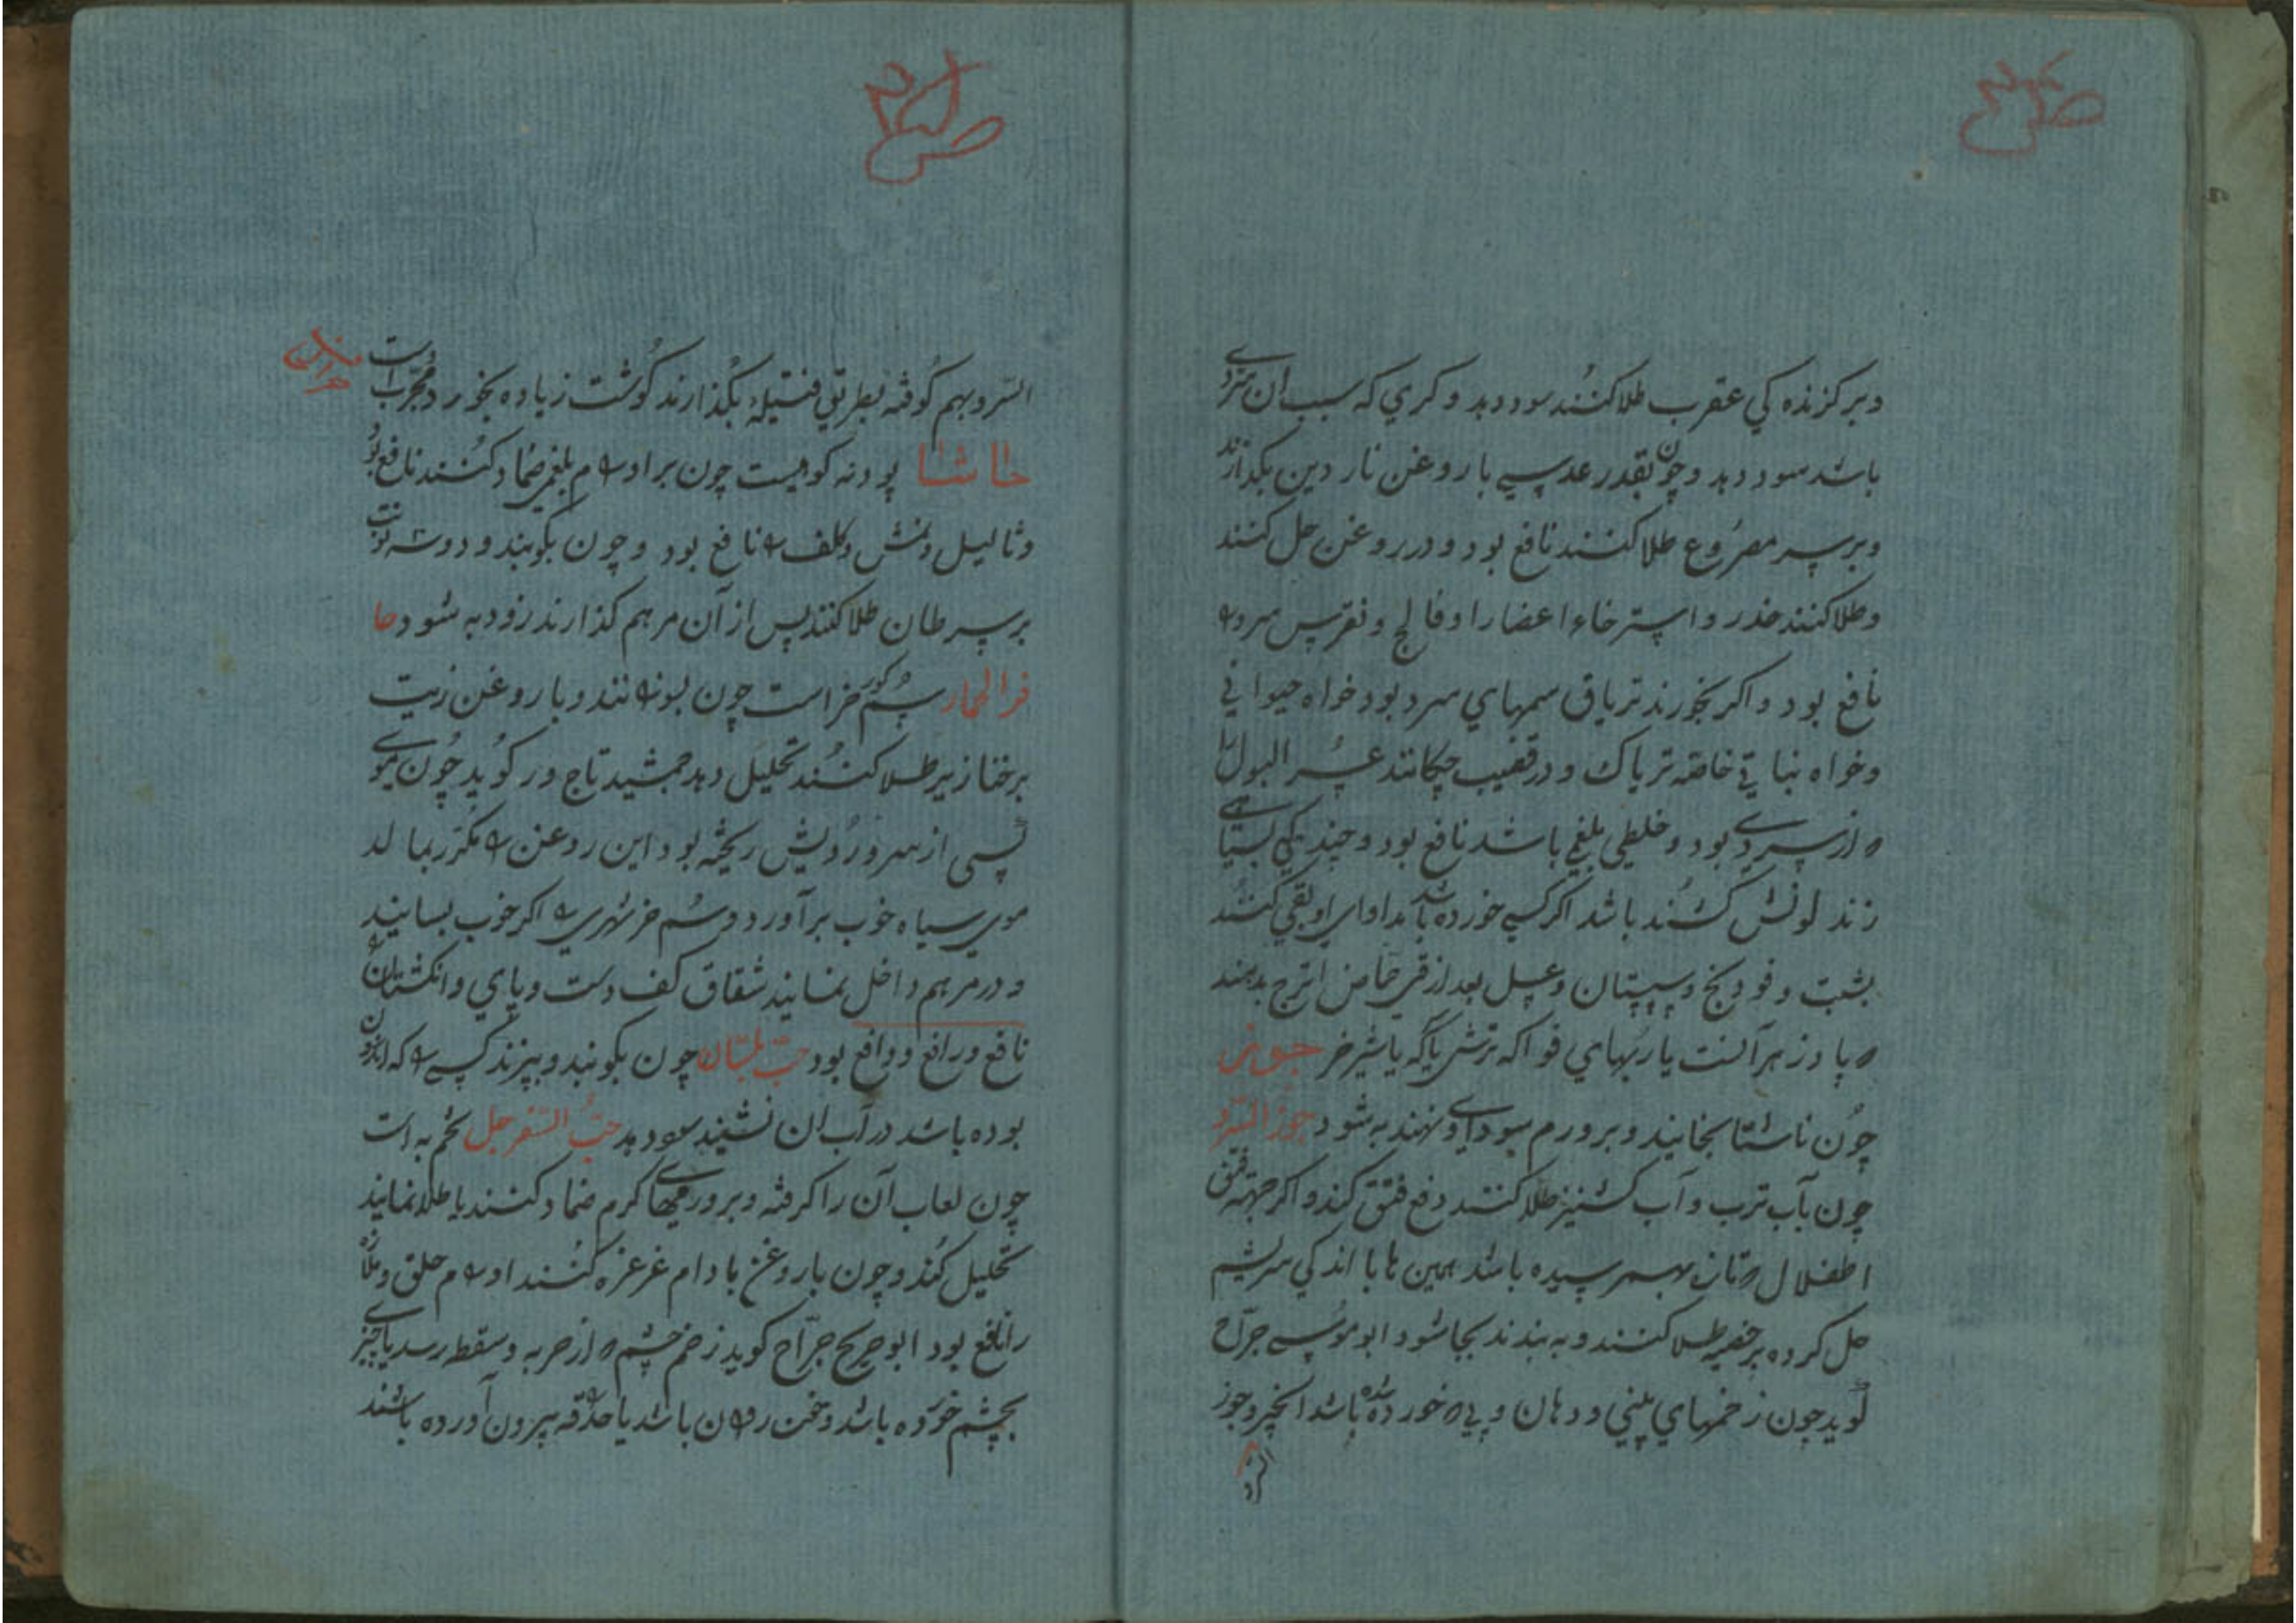 وبر کزنده کي عقرب طلا کنند سود دهد و کري که سبب ان سردے
باشد سود دهد و چون بقدر عدسے با روغن نار دین بکدازند
وبر سر مصروع طلا کنند نافع بود و در روغن حل کنند
وطلا کنند خدر و استرخاء اعضا را و فالج و نقرس سرد
نافع بود و اکر بخورند تریاق سمهاي سرد بود خواه حیواني
وخواه نباتي خاصه تریاک و در قضیب چکانند عسر البول را
از سردے بود و خلطي بلغمي باشد نافع بود و چند
کشند باشد اکر کسے خورده باشد مداواي او بقي کنند
بشبت و فودنج و سپستان و عسل بعد از قي حماض اترج بدهند
پا دزهر آنست یا ربهاي فواکه ترش یا که یا شیر خر
چون ناشتا بخایند و بر ورم سوداي نهند به شود جوز السرو
چون بآب ترب و آب کشنیز طلا کنند دفع فتق کند و اکر جهته فتق
اطفلال بهمرسیده باشد همین با اندکي سریشم
حل کرده بر خصیه طلا کنند و به بندند بجا شود ابو موسے جرّاح
کوید چون زخمهاي بیني و دهان و خورده شده باشد انجیر و جوز
السرو
السرو بهم کوفته بطریق فتیله بکذارند کوشت زیاده بخورد و مجرّب است
حاشا پودنه کوهیست چون بر اورام بلغمي ضماد کنند نافع بود
و ثالیل و نمش و کلف نافع بود و چون بکوبند و دو سه نوبت
بر سرطان طلا کنند پس از آن مرهم کذارند زود به شود حا
فر الحمار سُم خر است چون بسوزانند و با روغن زیت
بر خنازیر طلا کنند تحلیل دهد جمشید تاج در کوید چون موے
کسي از سر و رویش ریخته بود این روغن مکرر بمالد
موي سیاه خوب برآورد و سُم خر شهري اکر خوب بسایند
و در مرهم داخل نمایند شقاق کف دست و پاي و انکشتان
نافع و رافع و دافع بود حبّ بلسان چون بکوبند و بپزند کسے که
بوده باشد در آب ان نشیند سود دهد حبّ السفرجل تخم به است
چون لعاب آن را کرفته و بر ورمهاے کرم ضماد کنند یا طلا نمایند
تحلیل کند و چون با روغن بادام غرغره کنند اورام حلق و ملازه
را نافع بود ابو جریح جرّاح کوید زخم چشم از حربه و سقطه رسد یا چیزے
بچشم خورده باشد و باشد یا حدقه بیرون آورده باشند